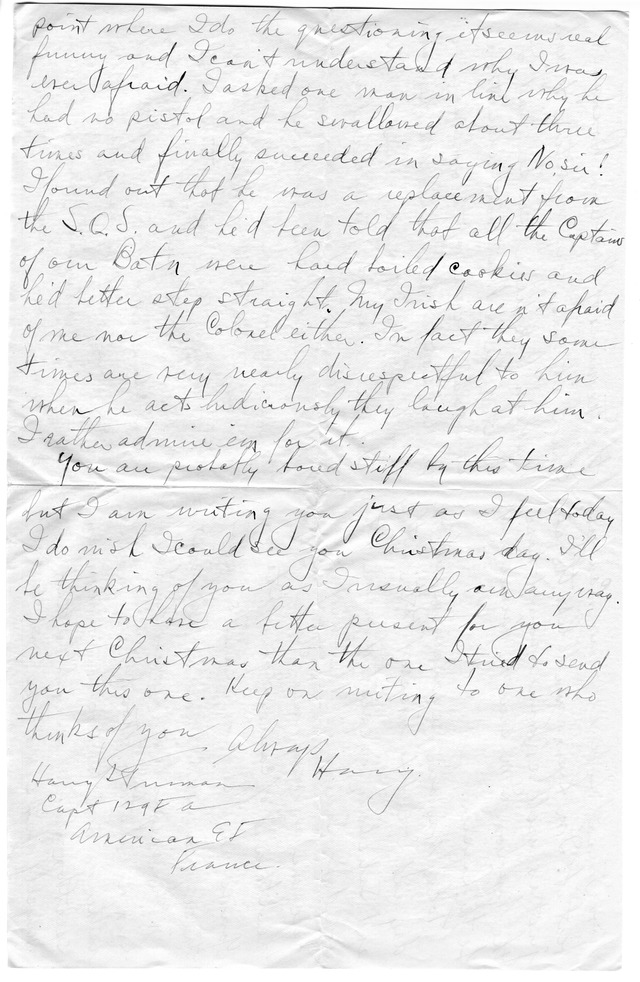 point where I do the questioning it seems real
funny and I can't understand why I was
ever afraid. I asked one man in line why he
had no pistol and he swallowed about three
times and finally succeeded in saying No, sir!
I found out that he was a replacement from
the S.O.S. and he'd been told that all the Captains
of our Batn were hard boiled cookies and
he'd better step straight. My Irish are n't afraid
of me nor the Colonel either. In fact they some
times are very nearly disrespectful to him
when he acts ludicrously they laugh at him.
I rather admire em for it.
You are probably bored stiff by this time
but I am writing you just as I feel today
I do wish I could see you Christmas day. I'll
be thinking of you as I usually am anyway.
I hope to have a better present for you
next Christmas than the one I tried to send
you this one. Keep on writing to one who
thinks of you
Always
Harry.
Harry S Truman
Capt 129 F A
American E F
France.